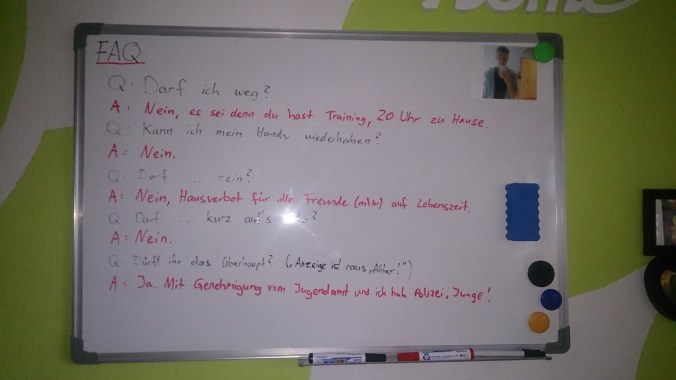 Home
FAQ
Q: Darf ich weg?
A: Nein, es sei denn du hast Training, 20 Uhr zu Hause.
Q: Kann ich mein Handy wiederhaben?
A: Nein.
Q: Darf ... rein?
A: Nein, Hausverbot für alle Freunde (m/w) auf Lebenszeit.
Q: Darf ... kurz auf's
A: Nein.
Q: Dürft ihr das überhaupt? ("Anzeige ist raus, Alter!")
A: Ja. Mit Genehmigung vom Jugendamt und ich hab Polizei, Junge!